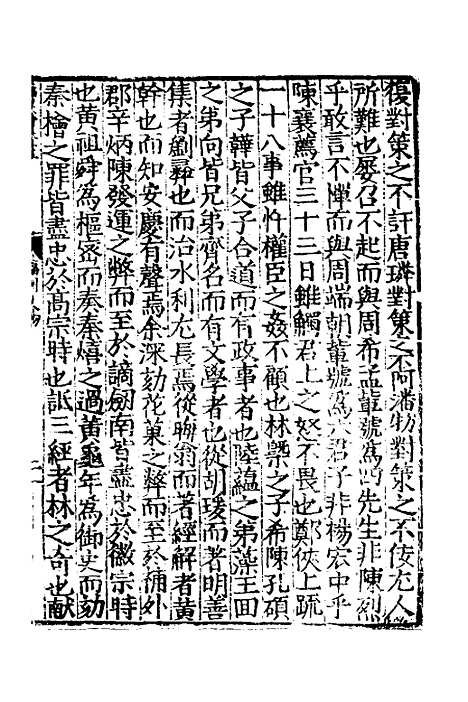 復對策之不訐唐璘對策之不阿潘牥對策之不佞尤人
所難也屡召不起而與周希孟軰號為四先生非陳烈
乎敢言不憚而與周端朝軰號為六君子非楊宏中乎
陳襄薦官三十三日雖觸君上之怒不畏也鄭俠上䟽
一十八事雖忤權臣之姦不顧也林槩之子希陳孔碩
之子韡皆父子合道而有政事者也陸藴之弟藻王回
之弟向皆兄弟齊名而有文學者也從胡瑗而著明善
集者劉彞也而治水利尤長焉從聨翁而著經解者黄
幹也而知安慶有聲焉余深劾花菓之弊而至於補外
郡辛炳陳發運之弊而至於謫劔南皆盡忠於徽宗時
也黄祖舜為樞宻而奏秦熺之過黄龜年為御史而劾
秦檜之罪皆盡忠於髙宗時也詆三經者林之竒也献